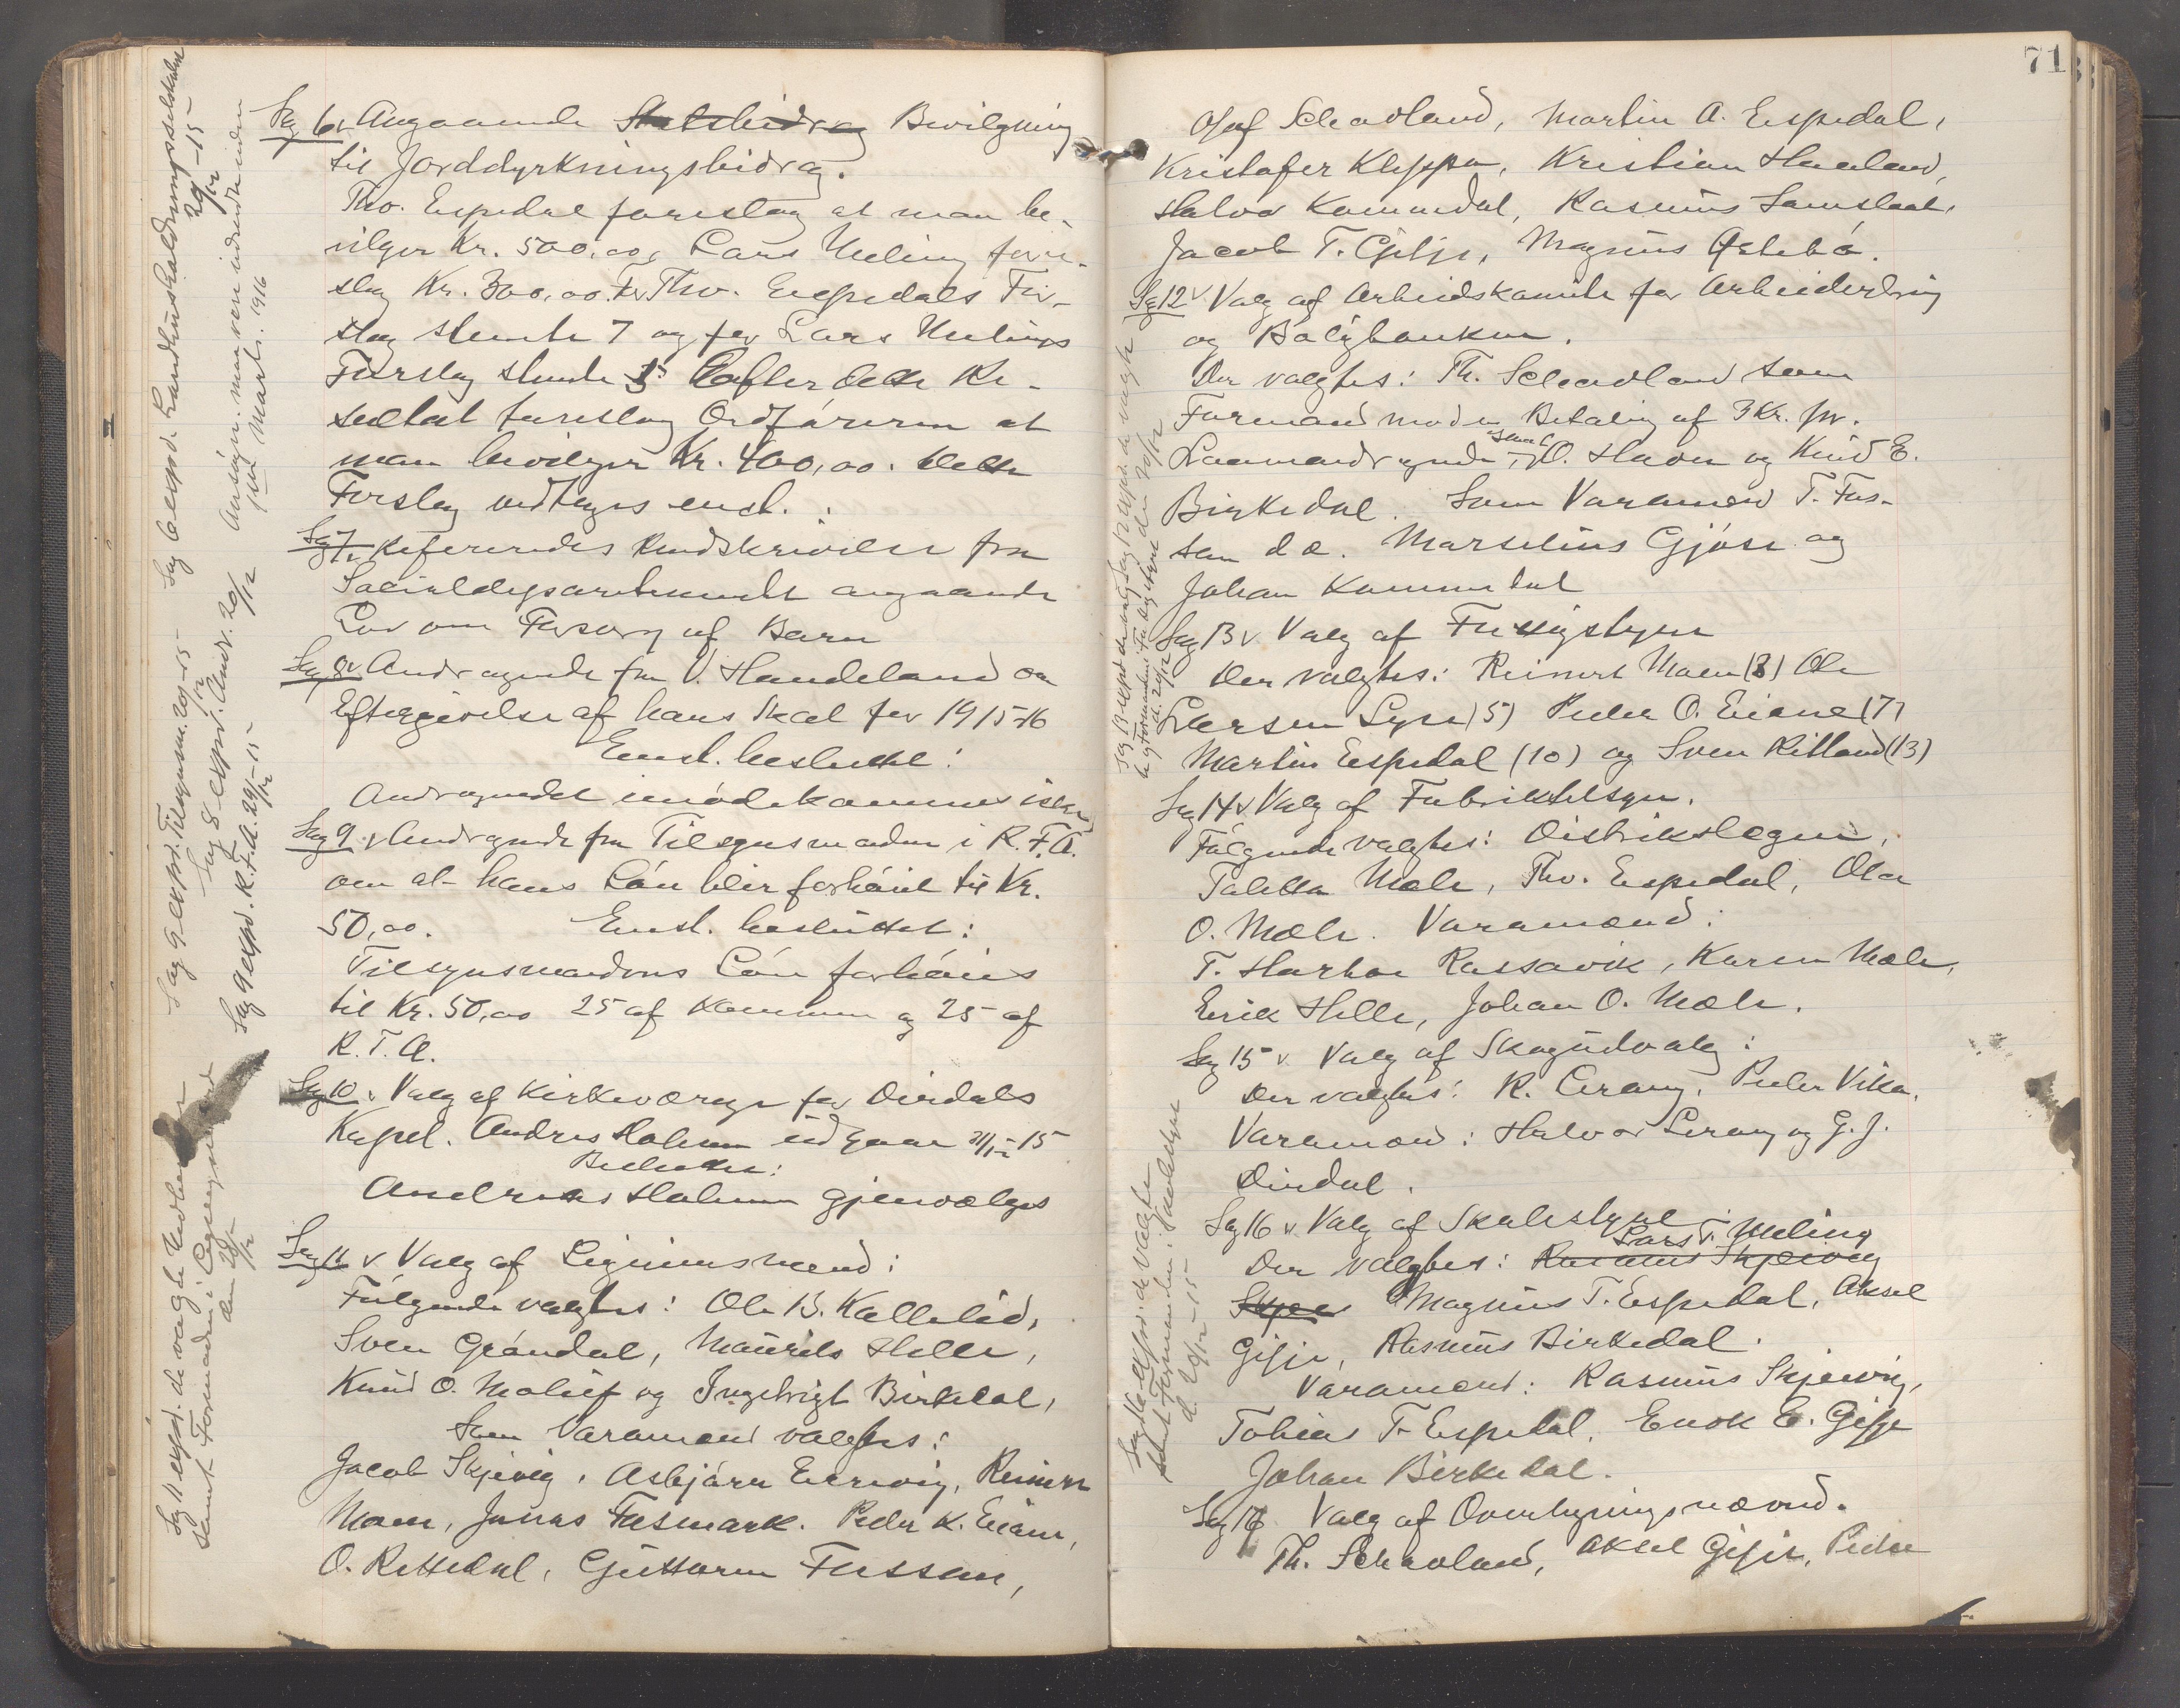 Sag 6 v Angaaende Statsbidrag Bevilgning
til Jorddyrkningsbidrag.
Thv. Espedal foreslog at man be-
vilger Kr. 500,00, Lars Meling fore-
slog Kr. 300,00. For Thv. Espedals For-
slag stemte 7 og for Lars Melings
Forslag stemte 5. Efter dette Re-
sultat foreslog Ordføreren at
man bevilger Kr. 400,00. Dette
Forslag vedtages enst.
Sag 7 v Refereredes Rundskrivelse fra
Socialdepartementet angaaende
Lov om Forsorg af Barn
Sag 8 v Andragende fra V. Handeland om
Eftergivelse af hans Skat for 1915-16
Enst. besluttet:
Andragendet imødekommes
Sag 9 v Andragende fra Tilsynsmanden i R.T.A.
om at hans Løn blir forhøiet til Kr.
50,00. Enst. besluttet:
Tilsynsmandens Løn forhøies
til Kr. 50,00 25 af Kommunen og 25 af
R.T.A.
Sag 10 v Valg af Kirkeværge for Dirdals
Kapel. AndreasHolmen udgaar 31/12-15
Besluttet:
Andreas Holmen gjenvælges
Sag 11 v Valg af Ligningsmænd:
Følgende valgtes: Ole B. Kallelid,
Sven Grøndal, Maurits Helle,
Knud O. Molauf og Ingebrigt Birkedal,
Som Varamænd valgtes:
Jacob Skjævig, Asbjørn Eikevig, Reinert
Moen, Jonas Fosmark. Peder K. Eiane,
O. Rettedal, Guttorm Fossan,
Sag 6 expd. Landhusholdningsselskabet
29/12-15
Ansøgn. maa være indsendt inden
1ste Marts. 1916
Sag 9 expd. Tilsynsm. 20/12-15
Sag 8 expd. Andr. 20/12
Sag 9 expd. R.T.A. 29/12-15
Sag 11 expd. de valgte Medlemmer
samt Formanden i Ligningsraad
den 20/12
71
Olaf Schavland, Martin A. Espedal,
Kristofer Kleppa, Kristian Haaland,
Halvor Kommedal, Rasmus Lomeland,
Jacob T. Gilje, Magnus Østebø.
Sag 12 v Valg af Arbeidskomite for Arbeiderbrug
og Boligbanken.
Der valgtes: Th. Schavland som
Formand mod en Betaling af 3 Kr. pr.
Laanandragende, samt O. Haven og Knud E.
Birkedal. Som Varamænd T. Fos-
san d.æ. Marselius Gjøse og
Johan Kommedal
Sag 13 v Valg af Fattigstyre
Der valgtes: Reinert Moen (8) Ole
Larsen Lyse (5) Peder O. Eiane (7)
Martin Espedal (10) og Sven Ritland (13)
Sag 14 v Valg af Fabriktilsyn.
Følgende valgtes: Distriktslægen,
Taletta Mæle, Thv. Espedal, Ola
O. Mæle. Varamænd:
T. Rossavik, Karen Mæle,
Erik Helle, Johan O. Mæle.
Sag 15 v Valg af Skogudvalg:
Der valgtes: R. Lerang, Peder Vika.
Varamænd: Halvor Lerang og G. J.
Dirdal.
Sag 16 v Valg af Skolestyre
Lars T. Meling
Der valgtes: Rasmus Skjæveig
Skjæv Magnus T. Espedal, Aksel
Gilje, Rasmus Birkedal.
Varamænd: Rasmus Skjæveig,
Tobias T. Espedal, Enok E. Gilje
Johan Birkedal.
Sag 17 Valg af Overligningsnævnd.
Th. Schavland, Aksel Gilje, Peder
Sag 12 expd. de valgte 20/12
Sag 13 expd. de valg-
te og Formanden i Fattigstyret
d. 20/12
Sag 16 expd. de valgte
samt Formanden i Skolestyret
d. 20/12-15